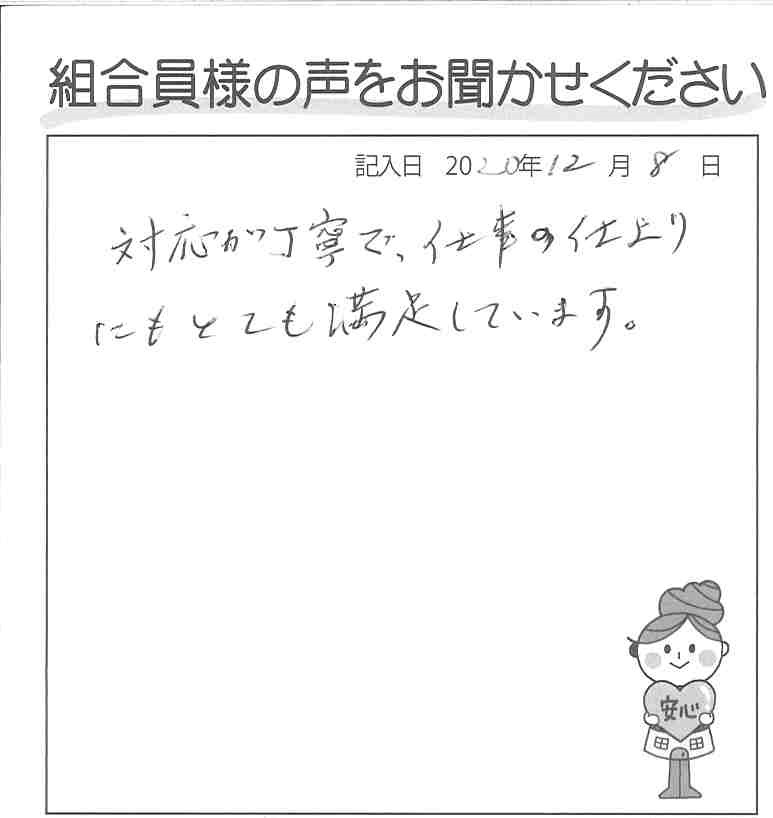 組合員様の声をお聞かせください
記入日 2020年12月8日
対応が丁寧で、仕事の仕上り
にもとても満足しています。
安心